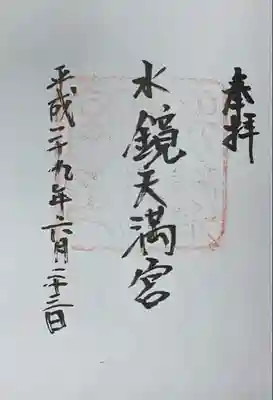 奉拝
水鏡天満宮
平成二十九年六月二十三日